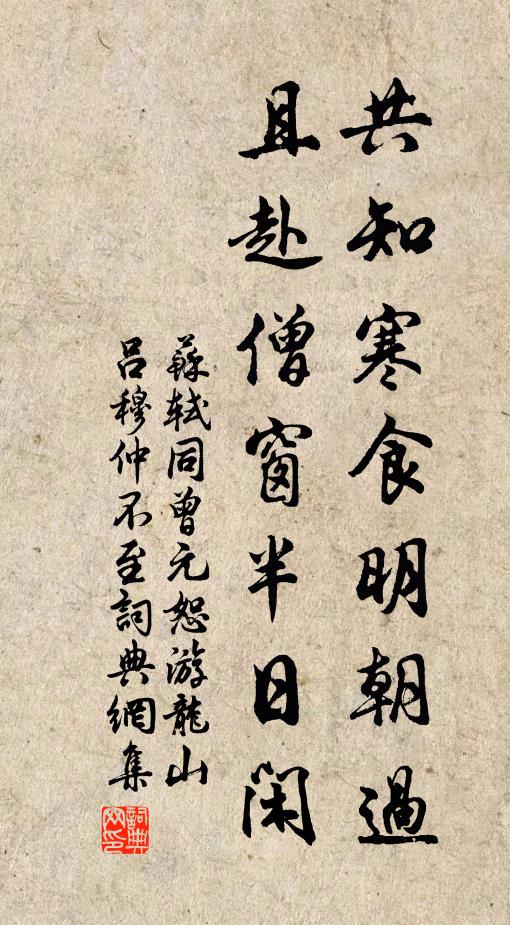 共知寒食明朝過
且赴僧窗半日閑
蘇軾同曾元恕游龍山
呂穆仲不至詞典網集
詞典网印